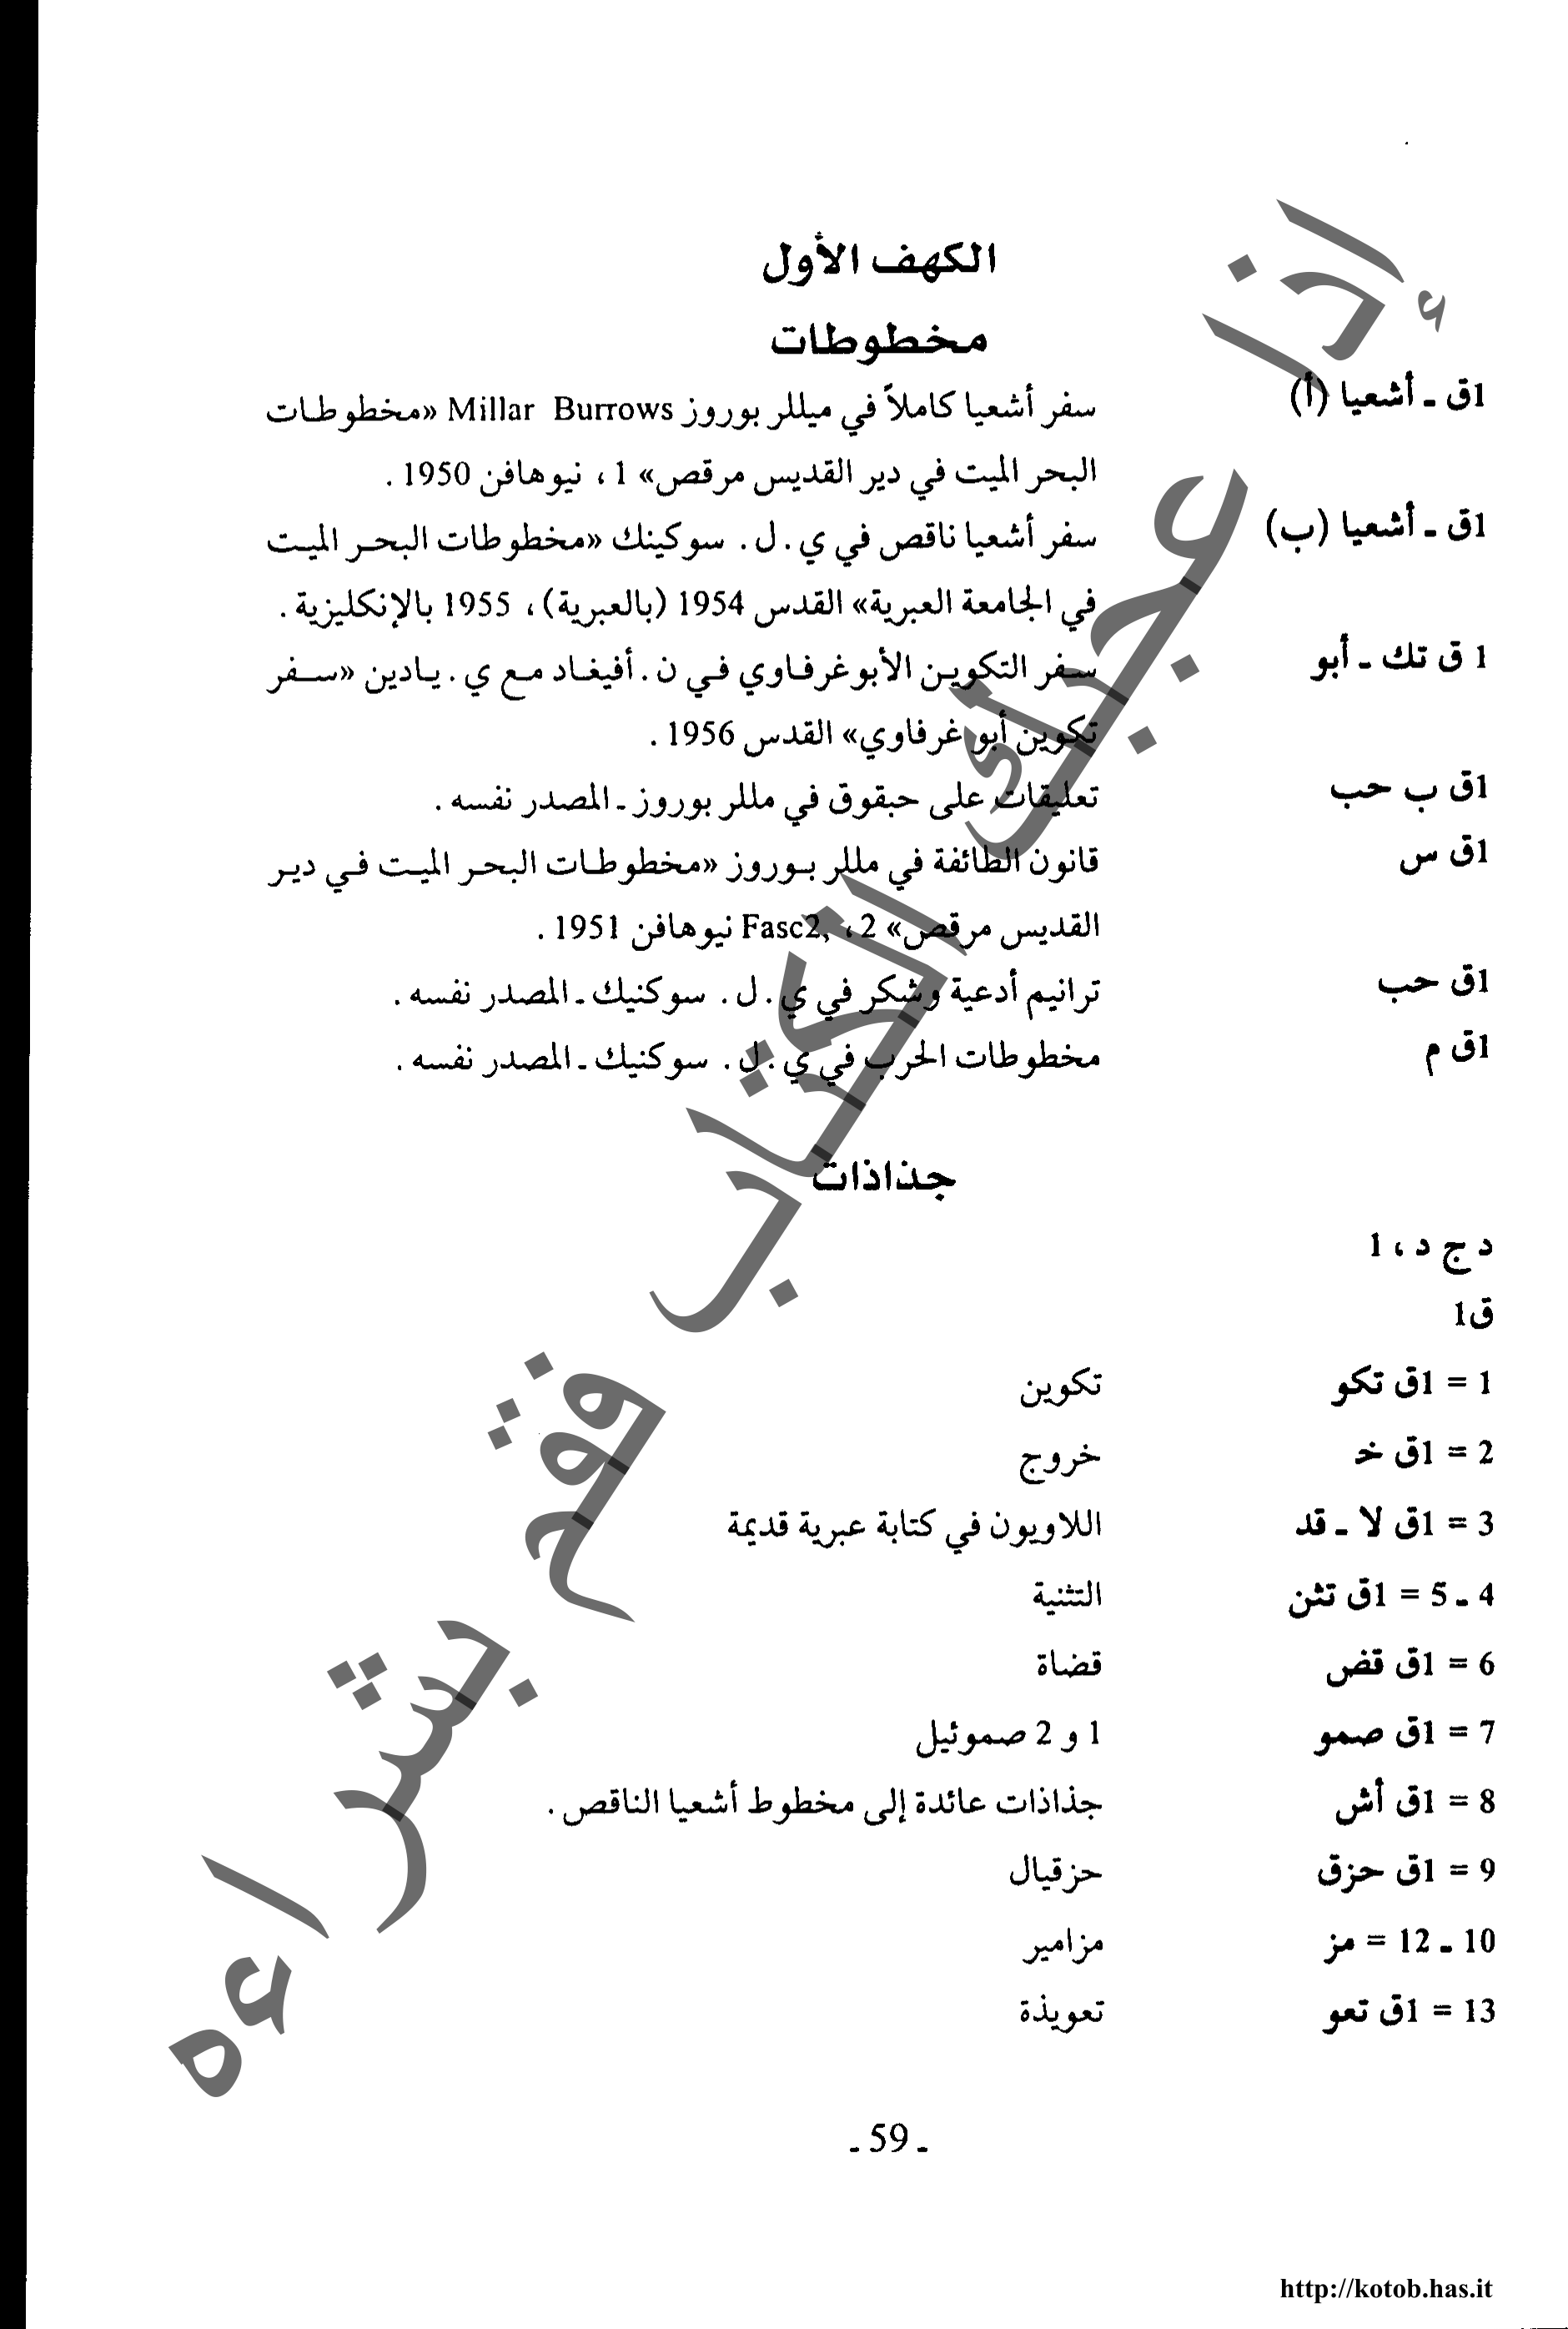 الكهف الأول
مخطوطات
1ق ـ أشعيا (أ) سفر أشعيا كاملاً في ميللر بوروز Millar Burrows «مخطوطات
البحر الميت في دير القديس مرقص» 1 ، نيوهافن 1950 .
1ق ـ أشعيا (ب) سفر أشعيا ناقص في ي . ل . سوكينك «مخطوطات البحر الميت
في الجامعة العبرية» القدس 1954 (بالعبرية) ، 1955 بالإنكليزية .
1 ق تك ـ أبو سفر التكوين الأبوغرفاوي في ن . أفيغاد مع ي . يادين «سفر
تكوين أبو غرفاوي» القدس 1956 .
1ق ب حب تعليقات على حبقوق في مللر بوروز ـ المصدر نفسه .
1ق س قانون الطائفة في مللر بوروز «مخطوطات البحر الميت في دير
القديس مرقص» 2 ، Fasc2, نيوهافن 1951 .
1ق حب ترانيم أدعية وشكر في ي . ل . سوكنيك ـ المصدر نفسه .
1ق م مخطوطات الحرب في ي . ل . سوكنيك ـ المصدر نفسه .
جذاذات
د ج د ، 1
ق1
1 = 1ق تكو تكوين
2 = 1ق خـ خروج
3 = 1ق لا ـ قد اللاويون في كتابة عبرية قديمة
4 ـ 5 = 1ق تثن التثنية
6 = 1ق قض قضاة
7 = 1ق صمو 1 و 2 صموئيل
8 = 1ق أش جذاذات عائدة إلى مخطوط أشعيا الناقص .
9 = 1ق حزق حزقيال
10 ـ 12 = مز مزامير
13 = 1ق تعو تعويذة
ـ 59 ـ
إذا أعجبك الكتاب فقم بشراءه
http://kotob.has.it